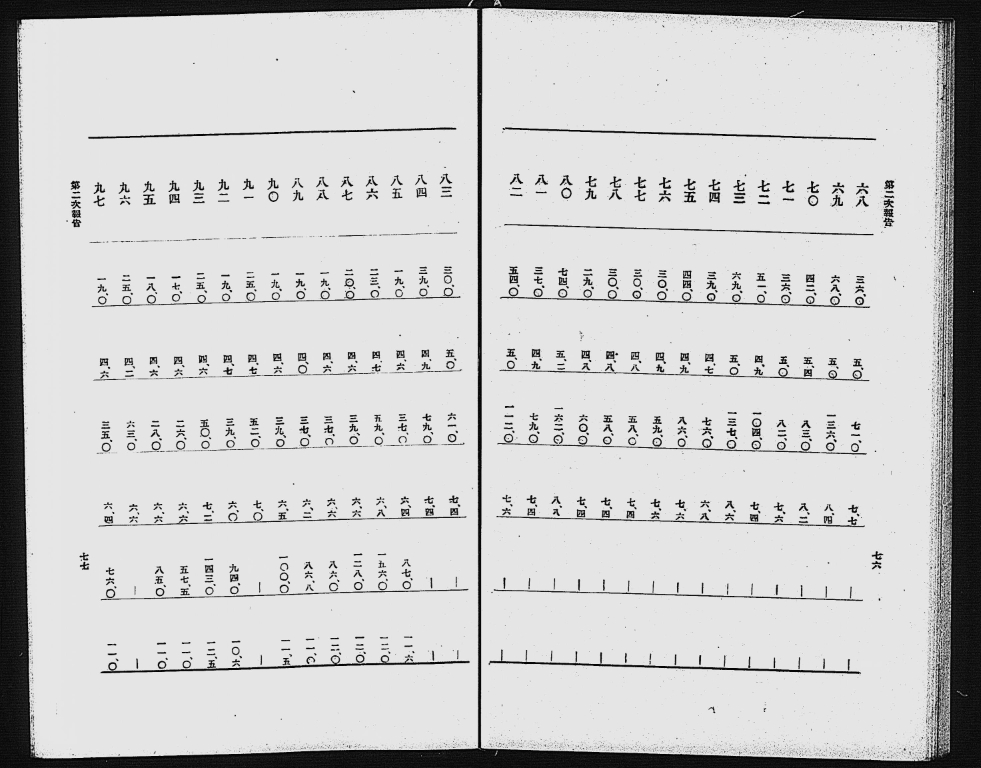 第二次報告
六八 三六、〇 五、〇 七一、〇 七、七 | |
六九 六八、〇 五、〇 一三六、〇 八、四 | |
七〇 四二、〇 五、四 八三、〇 八、二 | |
七一 三六、〇 五、〇 八二、〇 七、六 | |
七二 五一、〇 四、九 一〇四、〇 七、四 | |
七三 六九、〇 五、〇 一三七、〇 八、六 | |
七四 三九、〇 四、七 七六、〇 六、八 | |
七五 四四、〇 四、九 八六、〇 七、六 | |
七六 三〇、〇 四、九 五九、〇 七、六 | |
七七 三〇、〇 四、八 五八、〇 七、四 | |
七八 三〇、〇 四、八 五八、〇 七、四 | |
七九 二九、〇 四、八 六〇、〇 七、四 | |
八〇 七四、〇 五、二 一六二、〇 八、八 | |
八一 三七、〇 四、九 七九、〇 七、四 | |
八二 五四、〇 五、〇 一一二、〇 七、六 | |
七六
八三 三〇、〇 五、〇 六一、〇 七、四 | |
八四 三九、〇 四、九 七九、〇 七、四 | |
八五 一九、〇 四、六 三七、〇 六、四 八七、〇 一一、六
八六 二三、〇 四、七 五九、〇 六、八 一五六、〇 一二、〇
八七 二〇、〇 四、六 三九、〇 六、六 一二八、〇 一二、〇
八八 一九、〇 四、六 三七、〇 六、六 八六、〇 一二、〇
八九 一九、〇 四、〇 三七、〇 六、二 八六、八 一一、〇
九〇 一九、〇 四、六 三九、〇 六、五 一〇〇、〇 一一、五
九一 二五、〇 四、七 五二、〇 七、〇 | |
九二 一九、〇 四、七 三九、〇 六、〇 九四、〇 一〇、六
九三 二五、〇 四、六 五〇、〇 七、二 一四三、〇 一二、五
九四 一七、〇 四、六 二六、〇 六、六 五七、五 一一、〇
九五 一八、〇 四、六 二八、〇 六、六 八五、〇 一一、〇
九六 二五、〇 四、二 六三、〇 六、六 | |
九七 一九、〇 四、六 三五、〇 六、四 七六、〇 一一、〇
第二次報告
七七